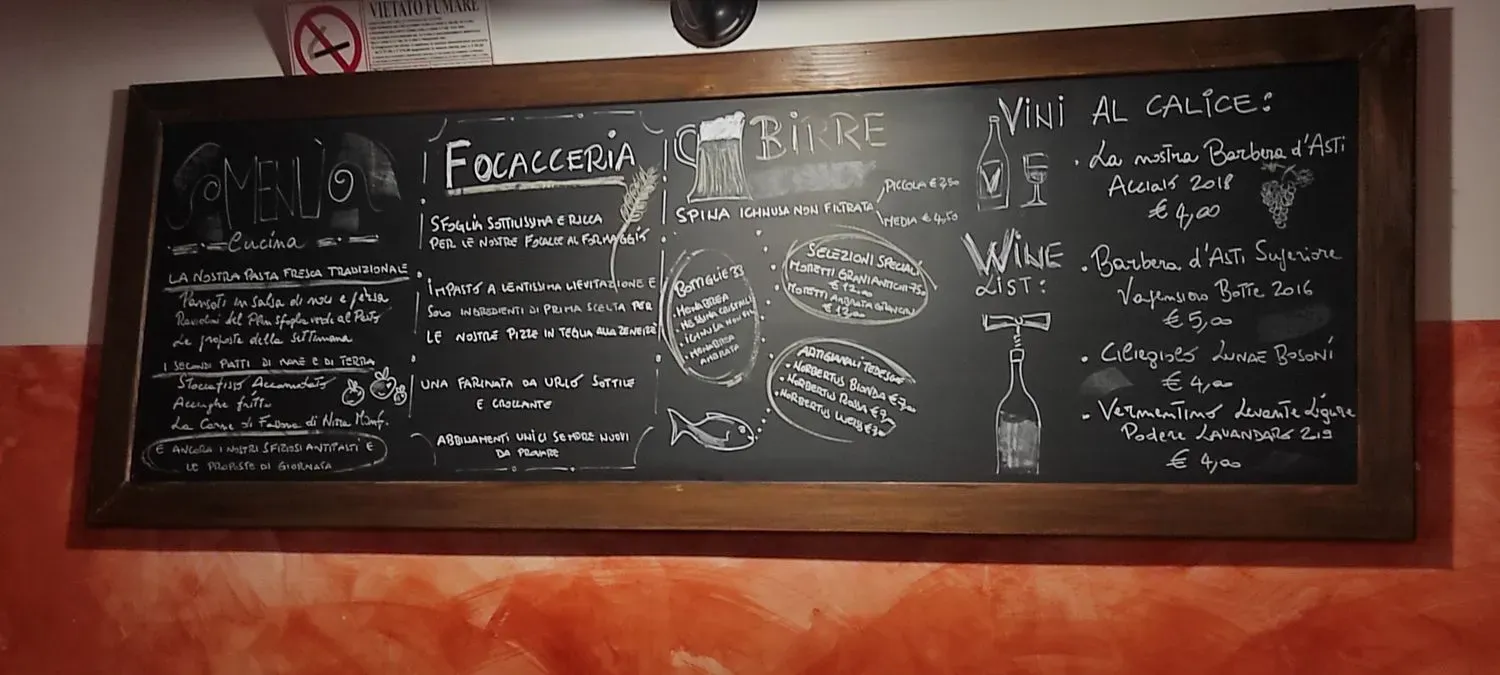 VIETATO FUMARE
MENÙ
Cucina
LA NOSTRA PASTA FRESCA TRADIZIONALE
Pansoti in salsa di noci e
Raviolini del Plin sfoglia verde al Pesto
Le proposte della settimana
I SECONDI PIATTI DI MARE E DI TERRA
Stoccafisso Accomodato
Acciughe fritte
La Carne di Fassona di Nizza Monf.
E ANCORA I NOSTRI SFIZIOSI ANTIPASTI E
LE PROPOSTE DI GIORNATA
FOCACCERIA
SFOGLIA SOTTILISSIMA E RICCA
PER LE NOSTRE FOCACCE AL FORMAGGIO
IMPASTO A LENTISSIMA LIEVITAZIONE E
SOLO INGREDIENTI DI PRIMA SCELTA PER
LE NOSTRE PIZZE IN TEGLIA ALLA ZENEIZE
UNA FARINATA DA URLO SOTTILE
E CROCCANTE
ABBINAMENTI UNICI SEMPRE NUOVI
DA PROVARE
BIRRE
SPINA ICHNUSA NON FILTRATA
PICCOLA € 2,50
MEDIA € 4,50
BOTTIGLIE 33
• MENABREA
• MESSINA CRISTALLI
• ICHNUSA NON FIL
• MENABREA
AMBRATA
SELEZIONI SPECIALI
MORETTI GRANI ANTICHI 750
€ 12,00
MORETTI AMBRATA
€ 12,00
ARTIGIANALI TEDESCHE
• NORBERTUS BIONDA € 7,00
• NORBERTUS ROSSA
• NORBERTUS WEISS
VINI AL CALICE:
• La nostra Barbera d'Asti
Acciaio 2018
€ 4,00
WINE
LIST:
• Barbera d'Asti Superiore
Botte 2016
€ 5,00
• Ciliegiolo LUNAE BOSONI
€ 4,00
• Vermentino Levante Ligure
Podere LAVANDARO 2019
€ 4,00